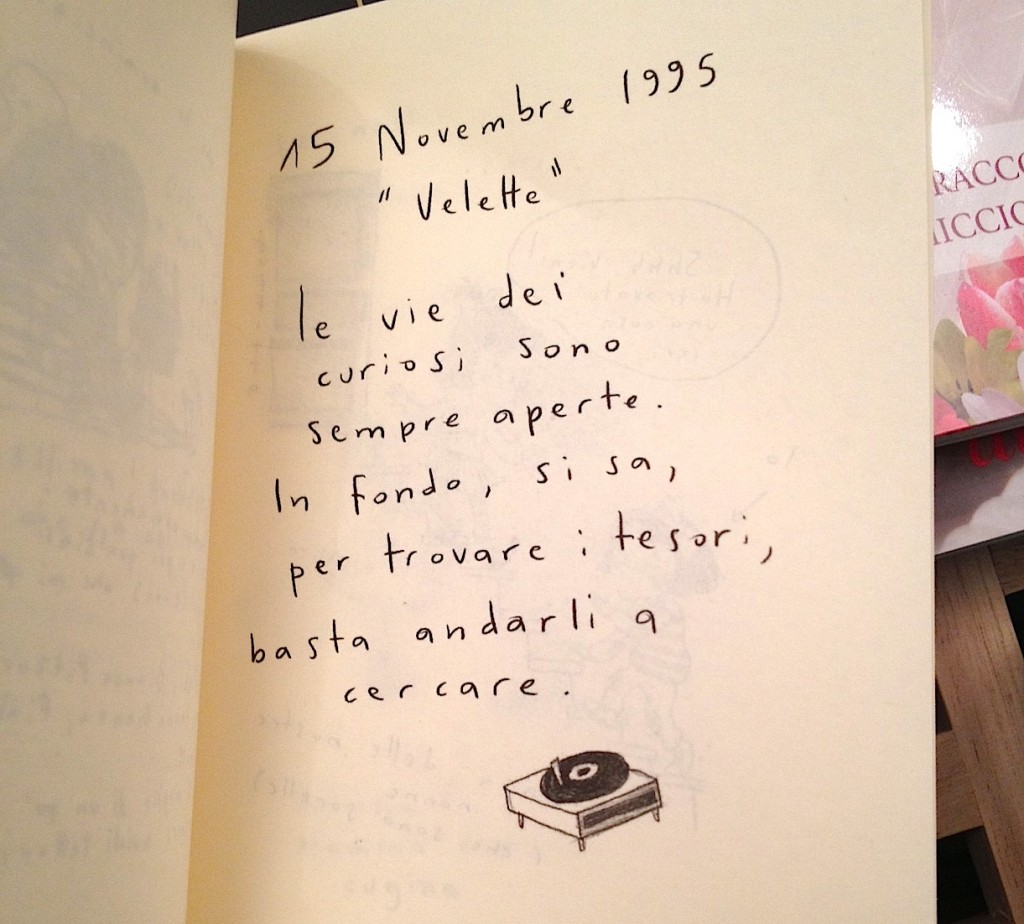 15 Novembre 1995
"Velette"
le vie dei
curiosi sono
sempre aperte.
In fondo, si sa,
per trovare i tesori,
basta andarli a
cercare.
RACCO
ICCIO